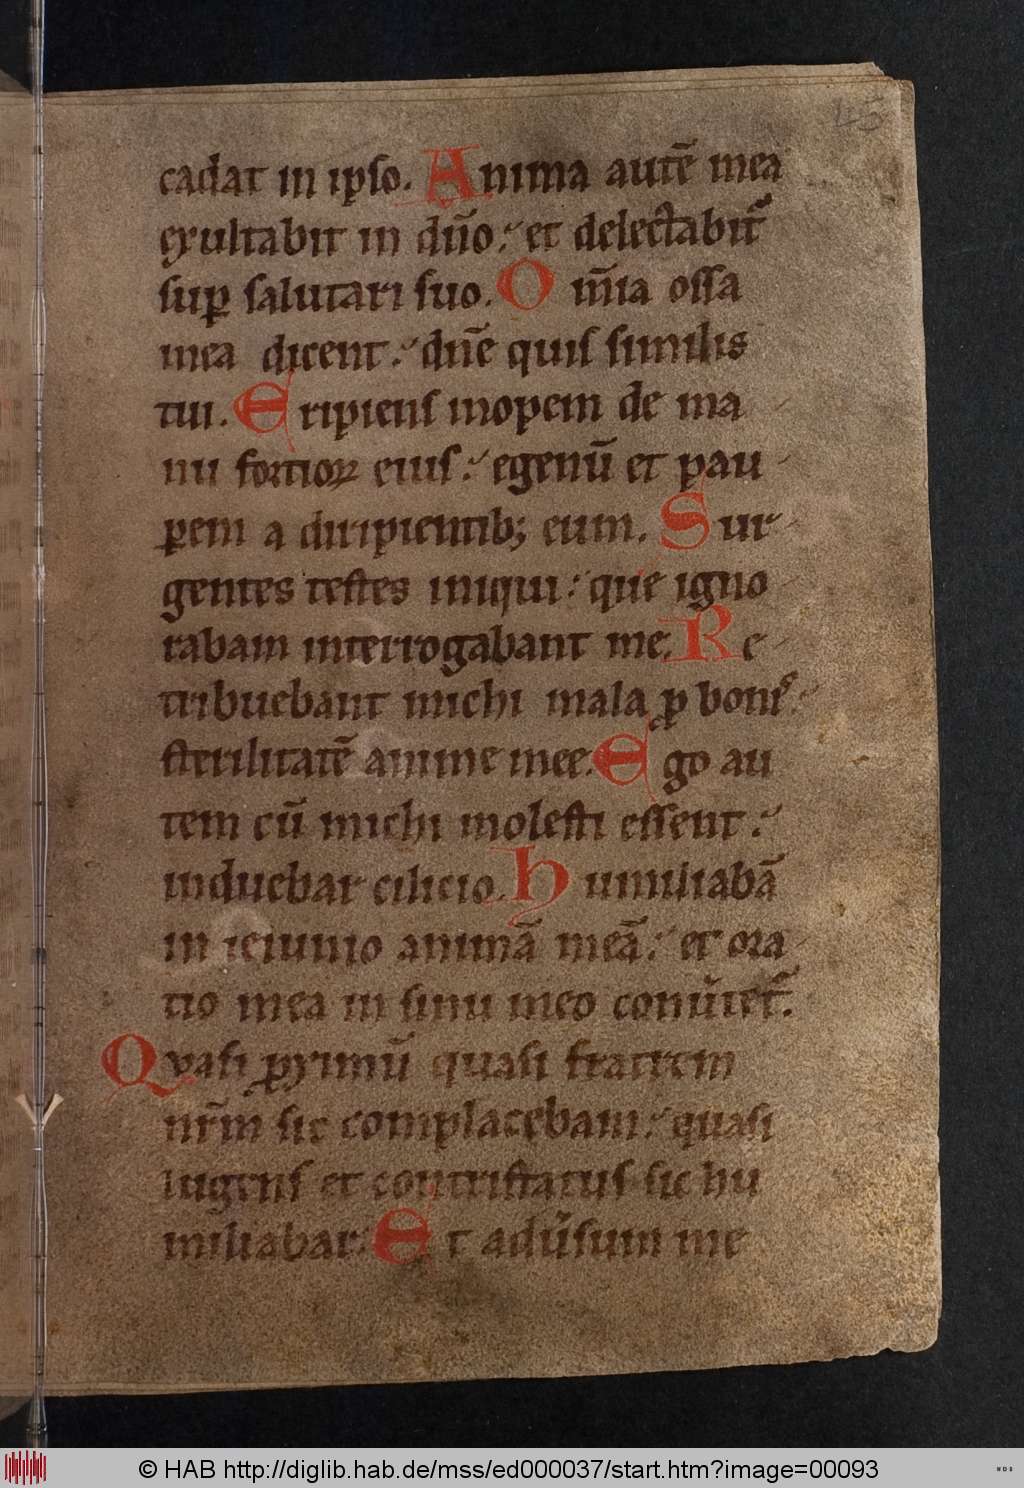 45
cadat in ipso. Anima autē mea
exultabit in dn̄o: et delectabit᷑
sup̱ salutari suo. Om̄ia ossa
mea dicent: dn̄e quis similis
tui. Eripiens inopem de ma
nu fortioꝝ eius: egenū et pau
ꝑem a diripientib; eum. Sur
gentes testes iniqui: que igno
rabam interrogabant me. Re
tribuebant michi mala ꝓ bonis:
sterilitatē anime mee. Ego au
tem cū michi molesti essent:
induebar cilicio. Humiliabā
in ieiunio animā meā: et ora
tio mea in sinu meo conu̓tet᷑.
Quasi ꝓximū quasi fratrem
nr̄m sic complacebam: quasi
lugens et contristatus sic hu
miliabar. Et adu̓sum me
© HAB http://diglib.hab.de/mss/ed000037/start.htm?image=00093